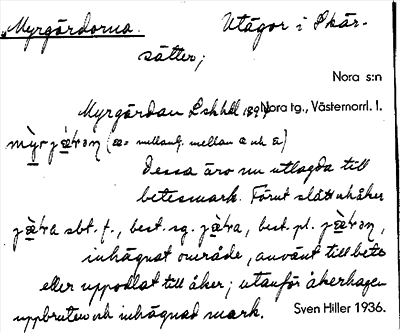 Myrgärdorna. Utägor i Skär-
sätter;
Nora s:n
Myrgärdan Lskhdl 1894 Nora tg., Västernorrl. l.
(æ = mellanlj. mellan a och ä)
Dessa äro nu utlagda till
betesmark. Förut slått och åker
sbt. f., best. sg. best. pl.
inhägnat område, använt till bete
eller uppodlat till åker; utanför åkerhagen
uppbruten och inhägnad mark. Sven Hiller 1936.